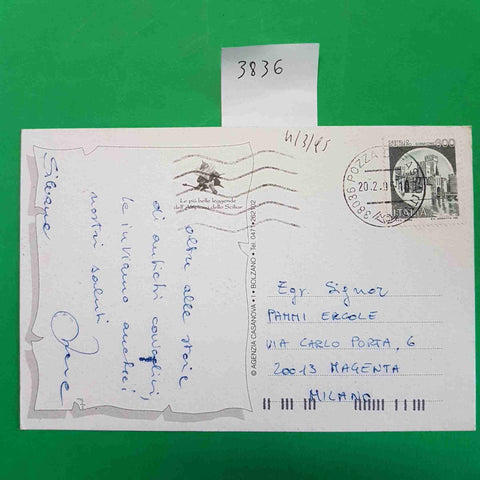 3836
4/3/95
Le più belle leggende
dell'Altopiano dello Sciliar
oltre alle storie
di antichi
le inviamo anche i
nostri saluti
Silvana
© AGENZIA CASANOVA • I • BOLZANO • Tel. 0471
38036 POZZA DI FASSA
20.2.9
600
ITALIA
Egr. Signor
PAMMI ERCOLE
VIA CARLO PORTA, 6
20013 MAGENTA
MILANO